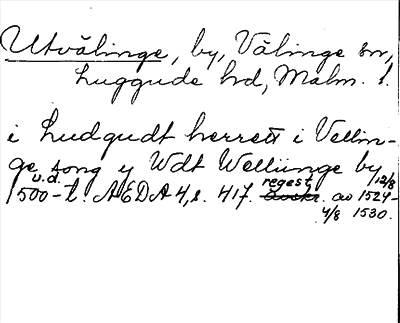 Utvälinge, by, Välinge sn,
Luggude hd, Malm. l.
i Ludgudt herrett i Vellin-
ge song y Wdt Wellünge by
u.d. regest 12/8
1500-t. AEDA 4, s. 417. avskr. av 1524-
4/8 1530.